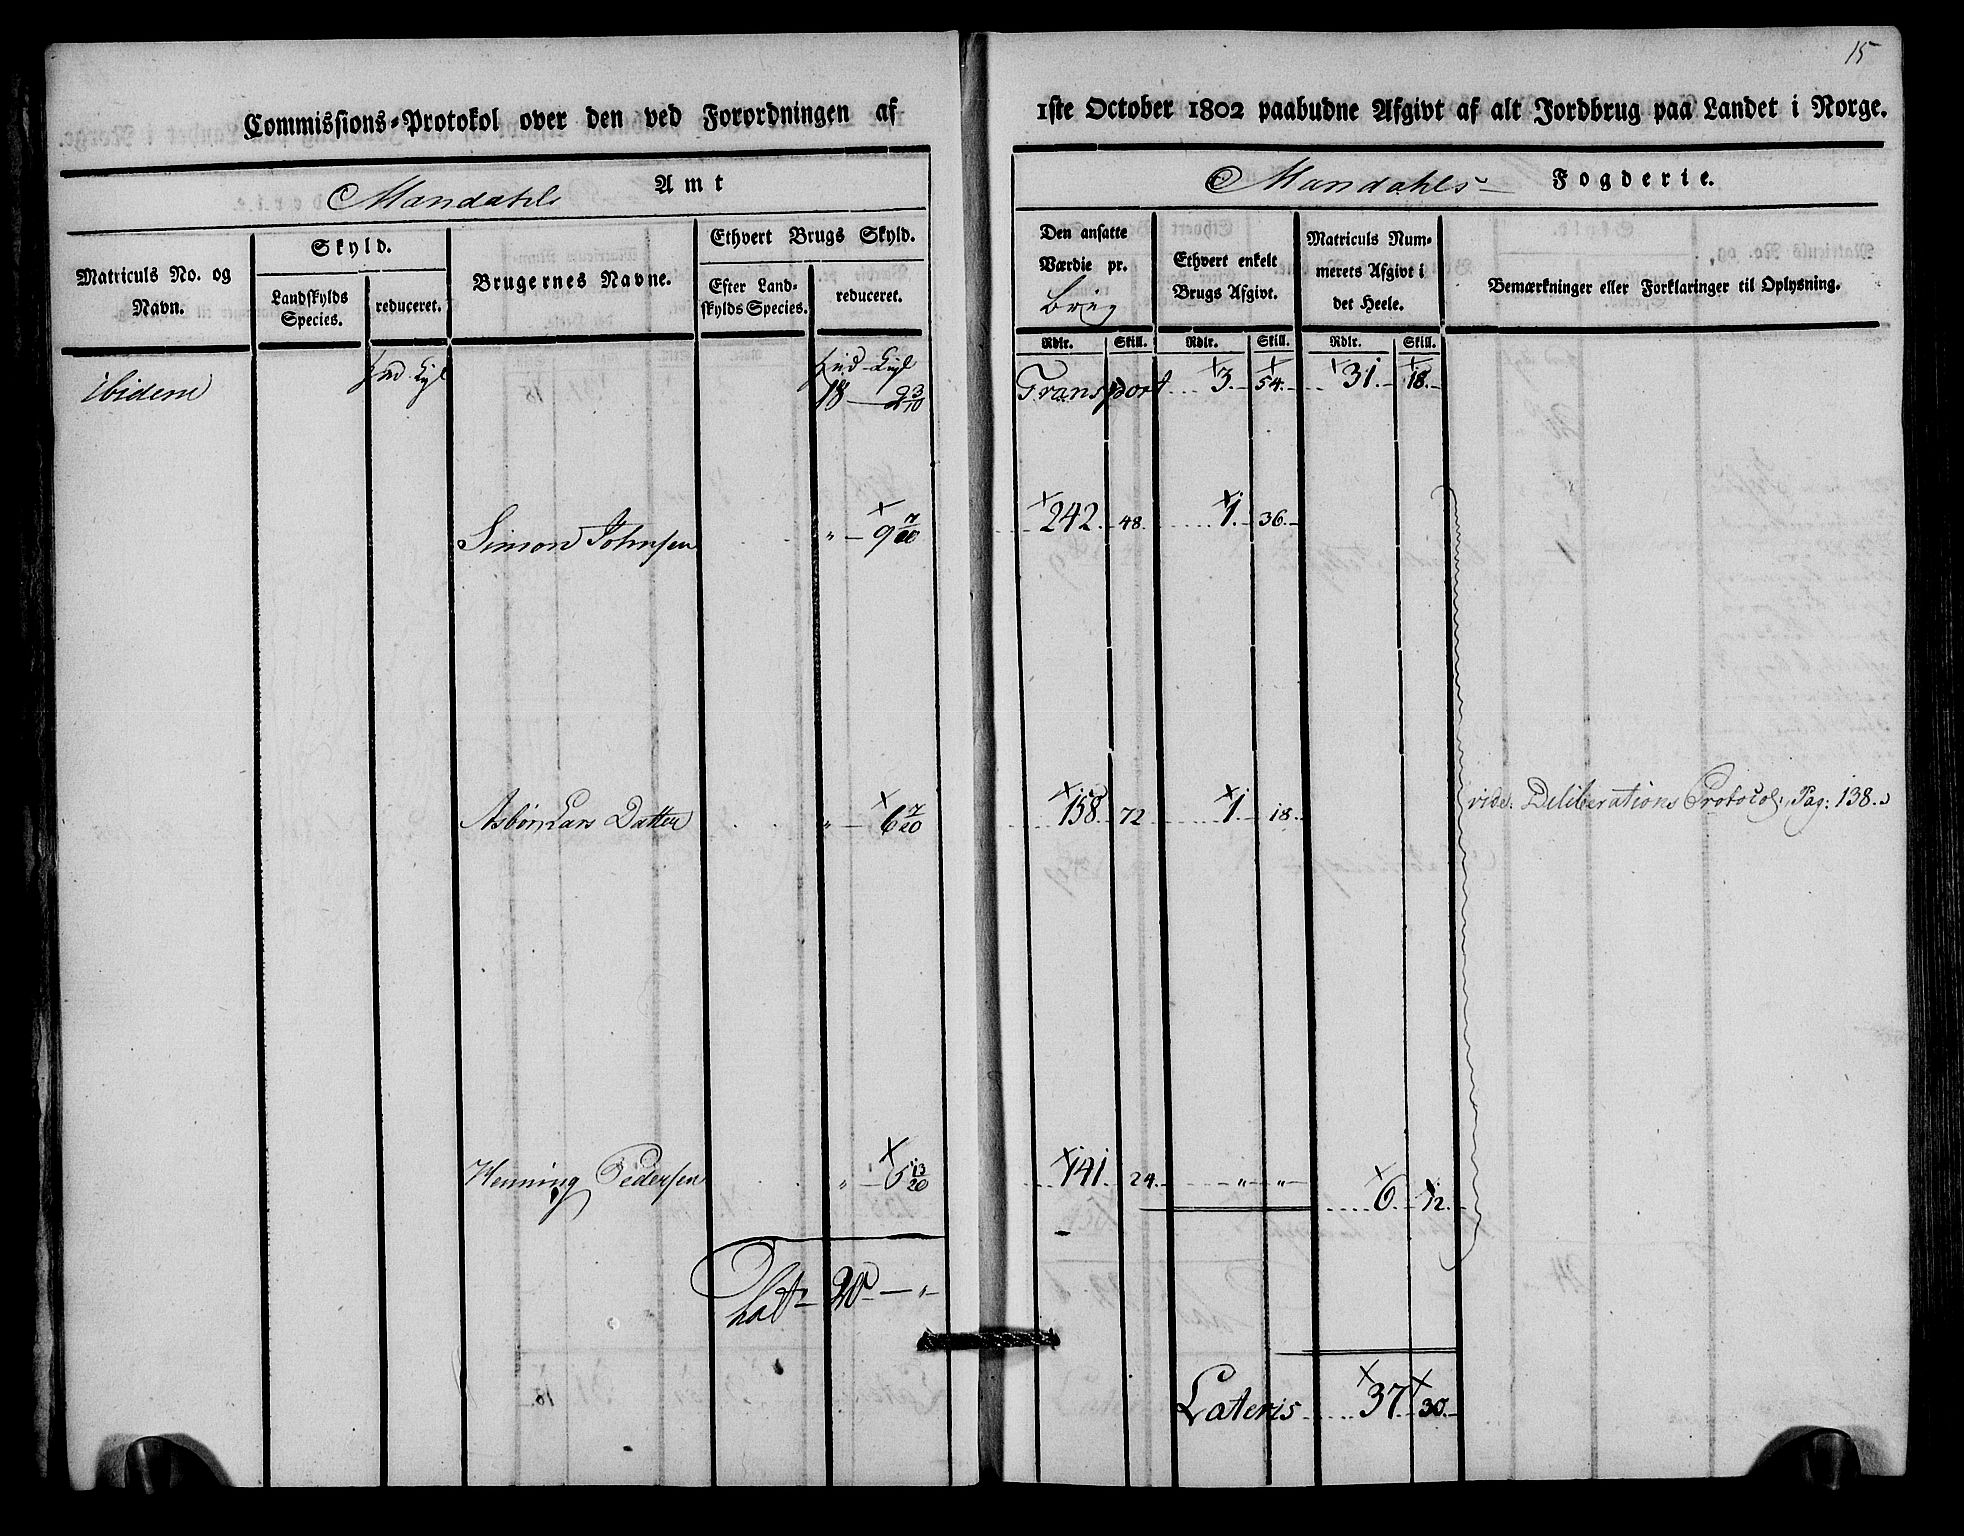 15
Commissions-Protokol over den ved Forordningen af 1ste October 1802 paabudne Afgivt af alt Jordbrug paa Landet i Norge.
Mandahls Amt
Mandahls Fogderie.
Matriculs No. og Navn.
Skyld.
Landskylds Species.
reduceret.
Brugernes Navne.
Ethvert Brugs Skyld.
Efter Landskylds Species.
reduceret.
Den ansatte Værdie pr. Brug
Ethvert enkelt Brugs Afgivt.
Matriculs Nummerets Afgivt i det Heele.
Bemærkninger eller Forklaringer til Oplysning.
Rdlr. Skill. Rdlr. Skill. Rdlr. Skill.
ibidem
18 — 2 3/10 Transport 3. 54. 31. 18.
Simon Johnsen " — 9 7/20 242. 48. 1. 36.
Asbør Lars Datter " — 6 7/20 158 72 1. 18. vide: Deliberations Protocol: Pag: 138.
Henning Pedersen " — 5 13/20 141 24. " " 6. 12.
20 — "
Lateris 37. 30.